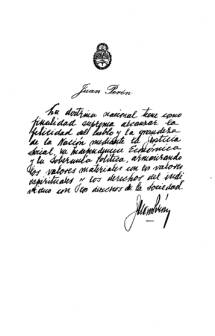 Juan Perón
La doctrina nacional tiene como
finalidad suprema alcanzar la
felicidad del Pueblo y la grandeza
de la Nación mediante la Justicia
Social, la Independencia Económica
y la Soberanía Política, armonizando
los valores materiales con los valores
espirituales y los derechos del indi
viduo con los derechos de la sociedad